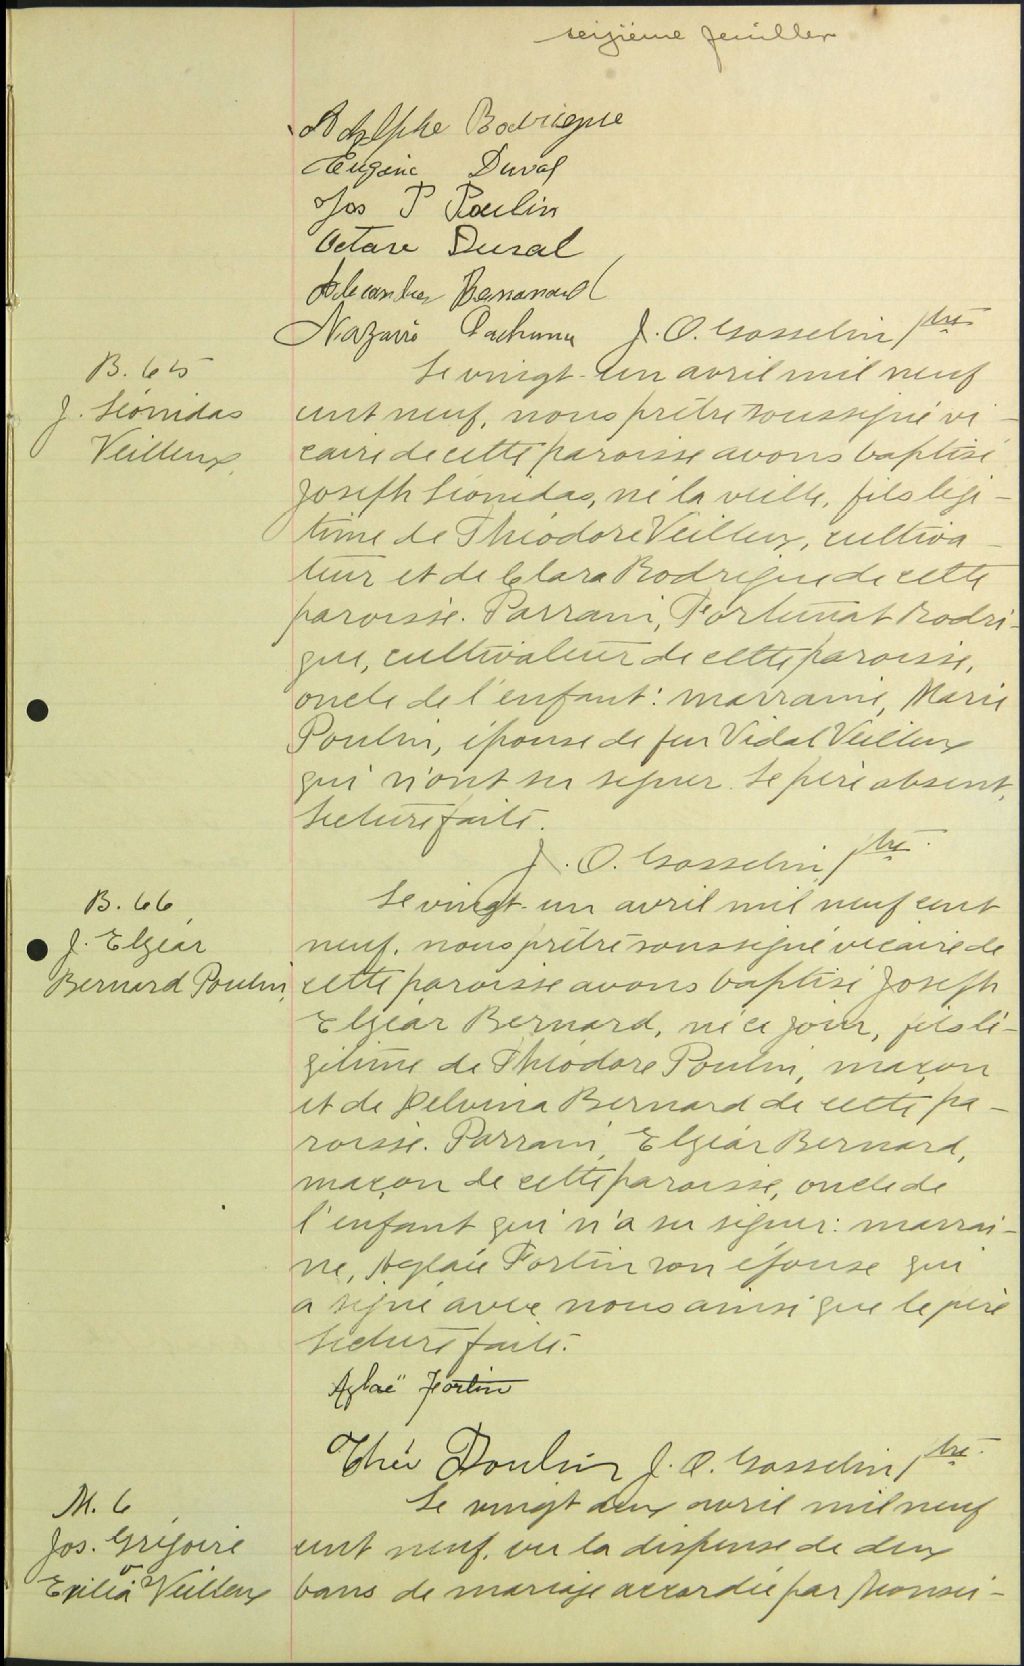 seizième feuillet
Adolphe Rodrigue
Eugène Duval
Jos P Poulin
Octave Duval
Nazaire J. O. Gosselin ptre
B. 65
J. Léonidas
Veilleux
Le vingt-un avril mil neuf
cent neuf, nous prêtre soussigné vi-
caire de cette paroisse avons baptisé
Joseph Léonidas, né la veille, fils légi-
time de Théodore Veilleux, cultiva-
teur et de Clara Rodrigue de cette
paroisse. Parrain, Fortunat Rodri-
gue, cultivateur de cette paroisse,
oncle de l'enfant: marraine, Marie
Poulin, épouse de feu Vidal Veilleux
qui n'ont su signer. Le père absent,
Lecture faite.
J. O. Gosselin, ptre.
B. 66
J. Elzéar
Bernard Poulin
Le vingt-un avril mil neuf cent
neuf, nous prêtre soussigné vicaire de
cette paroisse avons baptisé Joseph
Elzéar Bernard, né ce jour, fils lé-
gitime de Théodore Poulin, maçon
et de Delvina Bernard de cette pa-
roisse. Parrain, Elzéar Bernard,
maçon de cette paroisse, oncle de
l'enfant qui n'a su signer: marrai-
ne, Aglaée Fortin son épouse qui
a signé avec nous ainsi que le père
Lecture faite.
Aglaë Fortin
Théo Poulin J. O. Gosselin, ptre.
M. 6
Jos. Grégoire
&
Exilia Veilleux
Le vingt deux avril mil neuf
cent neuf, vu la dispense de deux
bans de mariage accordée par Monsei-